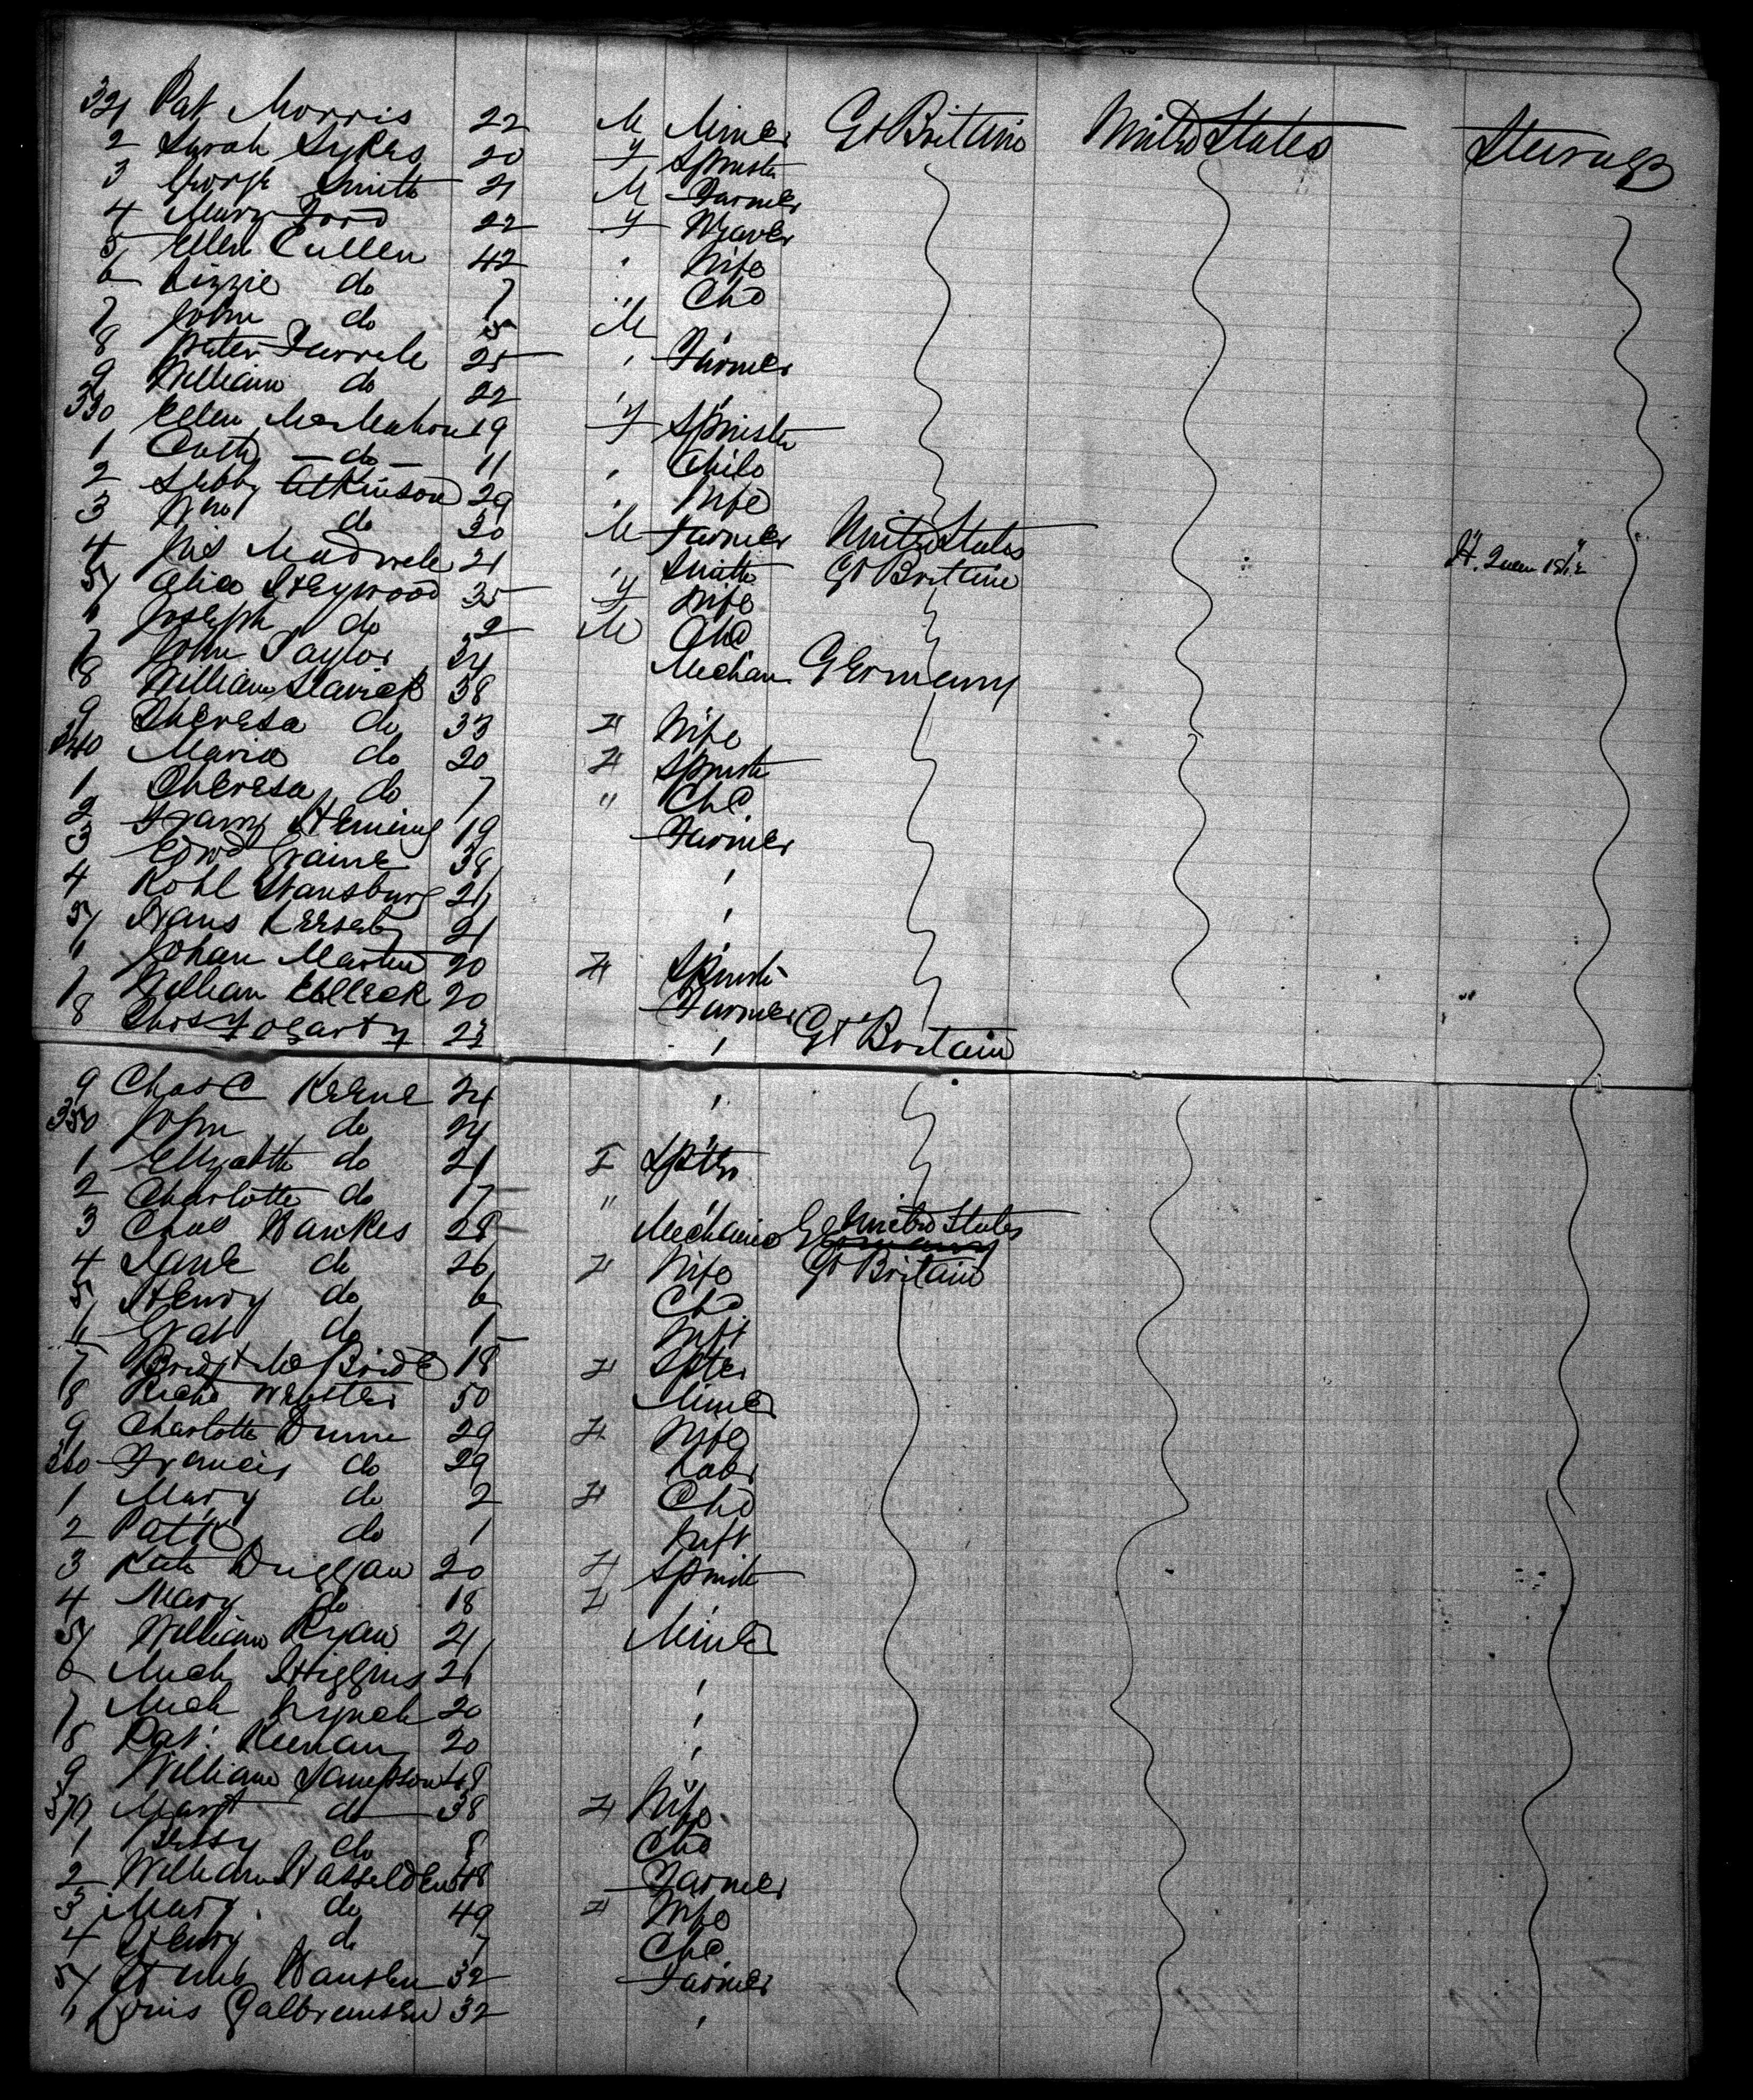 321 Pat Morris 22 M Miner Gt Brittain United States Steerage
2 Sarah Sykes 20 F Spinster
3 George Smith 21 M Farmer
4 Mary Ford 22 F Weaver
5 Ellen Cullen 42 " Wife
6 Lizzie do 7 " Chd
7 John do 5 M
8 Peter Farrele 25 " Farmer
9 William do 22 " "
330 Ellen McMahon 19 F Spinster
1 Cath do 11 " Child
2 Atkinson 29 " Wife
3 Wm do 30 M Farmer United States
4 Jas 21 " Smith Gt Britain
5 Alice Heywood 35 F Wife
6 Joseph do 2 M Chd
7 John Taylor 34 Mechan Germany
8 William Slavick 38
9 Theresa do 33 F Wife
340 Maria do 20 F Spinstr
1 Theresa do 7 " Chd
2 Franz Heming 19 Farmer
3 Edwd 38 "
4 Kohl 21 "
5 Hans 21 "
6 Johan Martin 20 F Spinstr
7 William 20 Farmer
8 Thos Fogarty 22 " Gt Britain
9 Chas C Keene 24 "
350 John do 24 "
1 Elizabth do 21 F Spstr
2 Charlotte do 17 " "
3 Chas Bankes 28 Mechanic United States
4 Jane do 26 F Wife Gt Britain
5 Henry do 6 Chd
6 do 1 Inft
7 Bridgt McBride 18 F Spter
8 Richd Webster 50 Miner
9 Charlotte Dunn 29 F Wife
360 Francis do 29 Labr
1 Mary do 2 F Chd
2 Patk do 1 Inft
3 Kate Duggan 20 F Spinstr
4 Mary do 18 F
5 William Ryan 21 Miner
6 Mich Higgins 21 "
7 Mich Lynch 20 "
8 Pat. Keenan 20 "
9 William Sampson 48 "
370 Margt do 38 F Wife
1 do 8 Chd
2 William Hasselden 48 Farmer
3 Mary do 49 F Wife
4 Henry do 7 Chd
5 Hansen 32 Farmer
6 Louis Galbransen 32 "